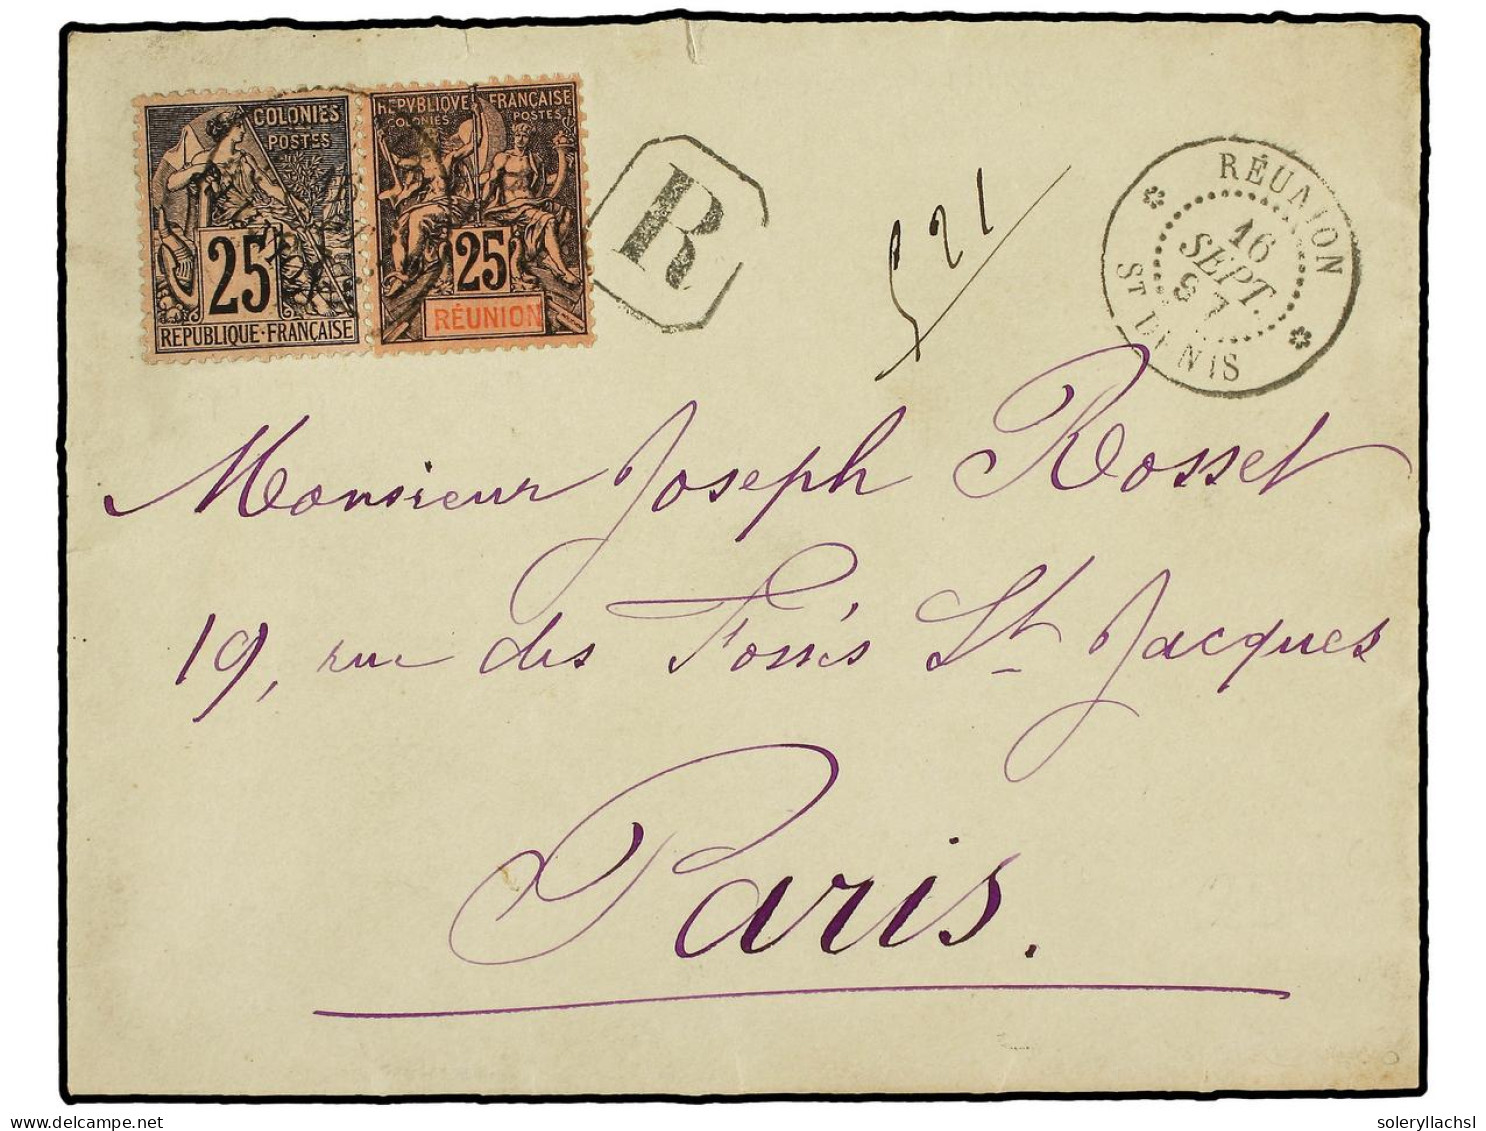 COLONIES
POSTES
25
REPUBLIQUE-FRANÇAISE
REPVBLIQVE FRANÇAISE
COLONIES POSTES
25
RÉUNION
R
521
RÉUNION
16
SEPT.
97
ST DENIS
Monsieur Joseph Rosset
19, rue des Fossés St Jacques
Paris.
delcampe.net
soleryllachsl